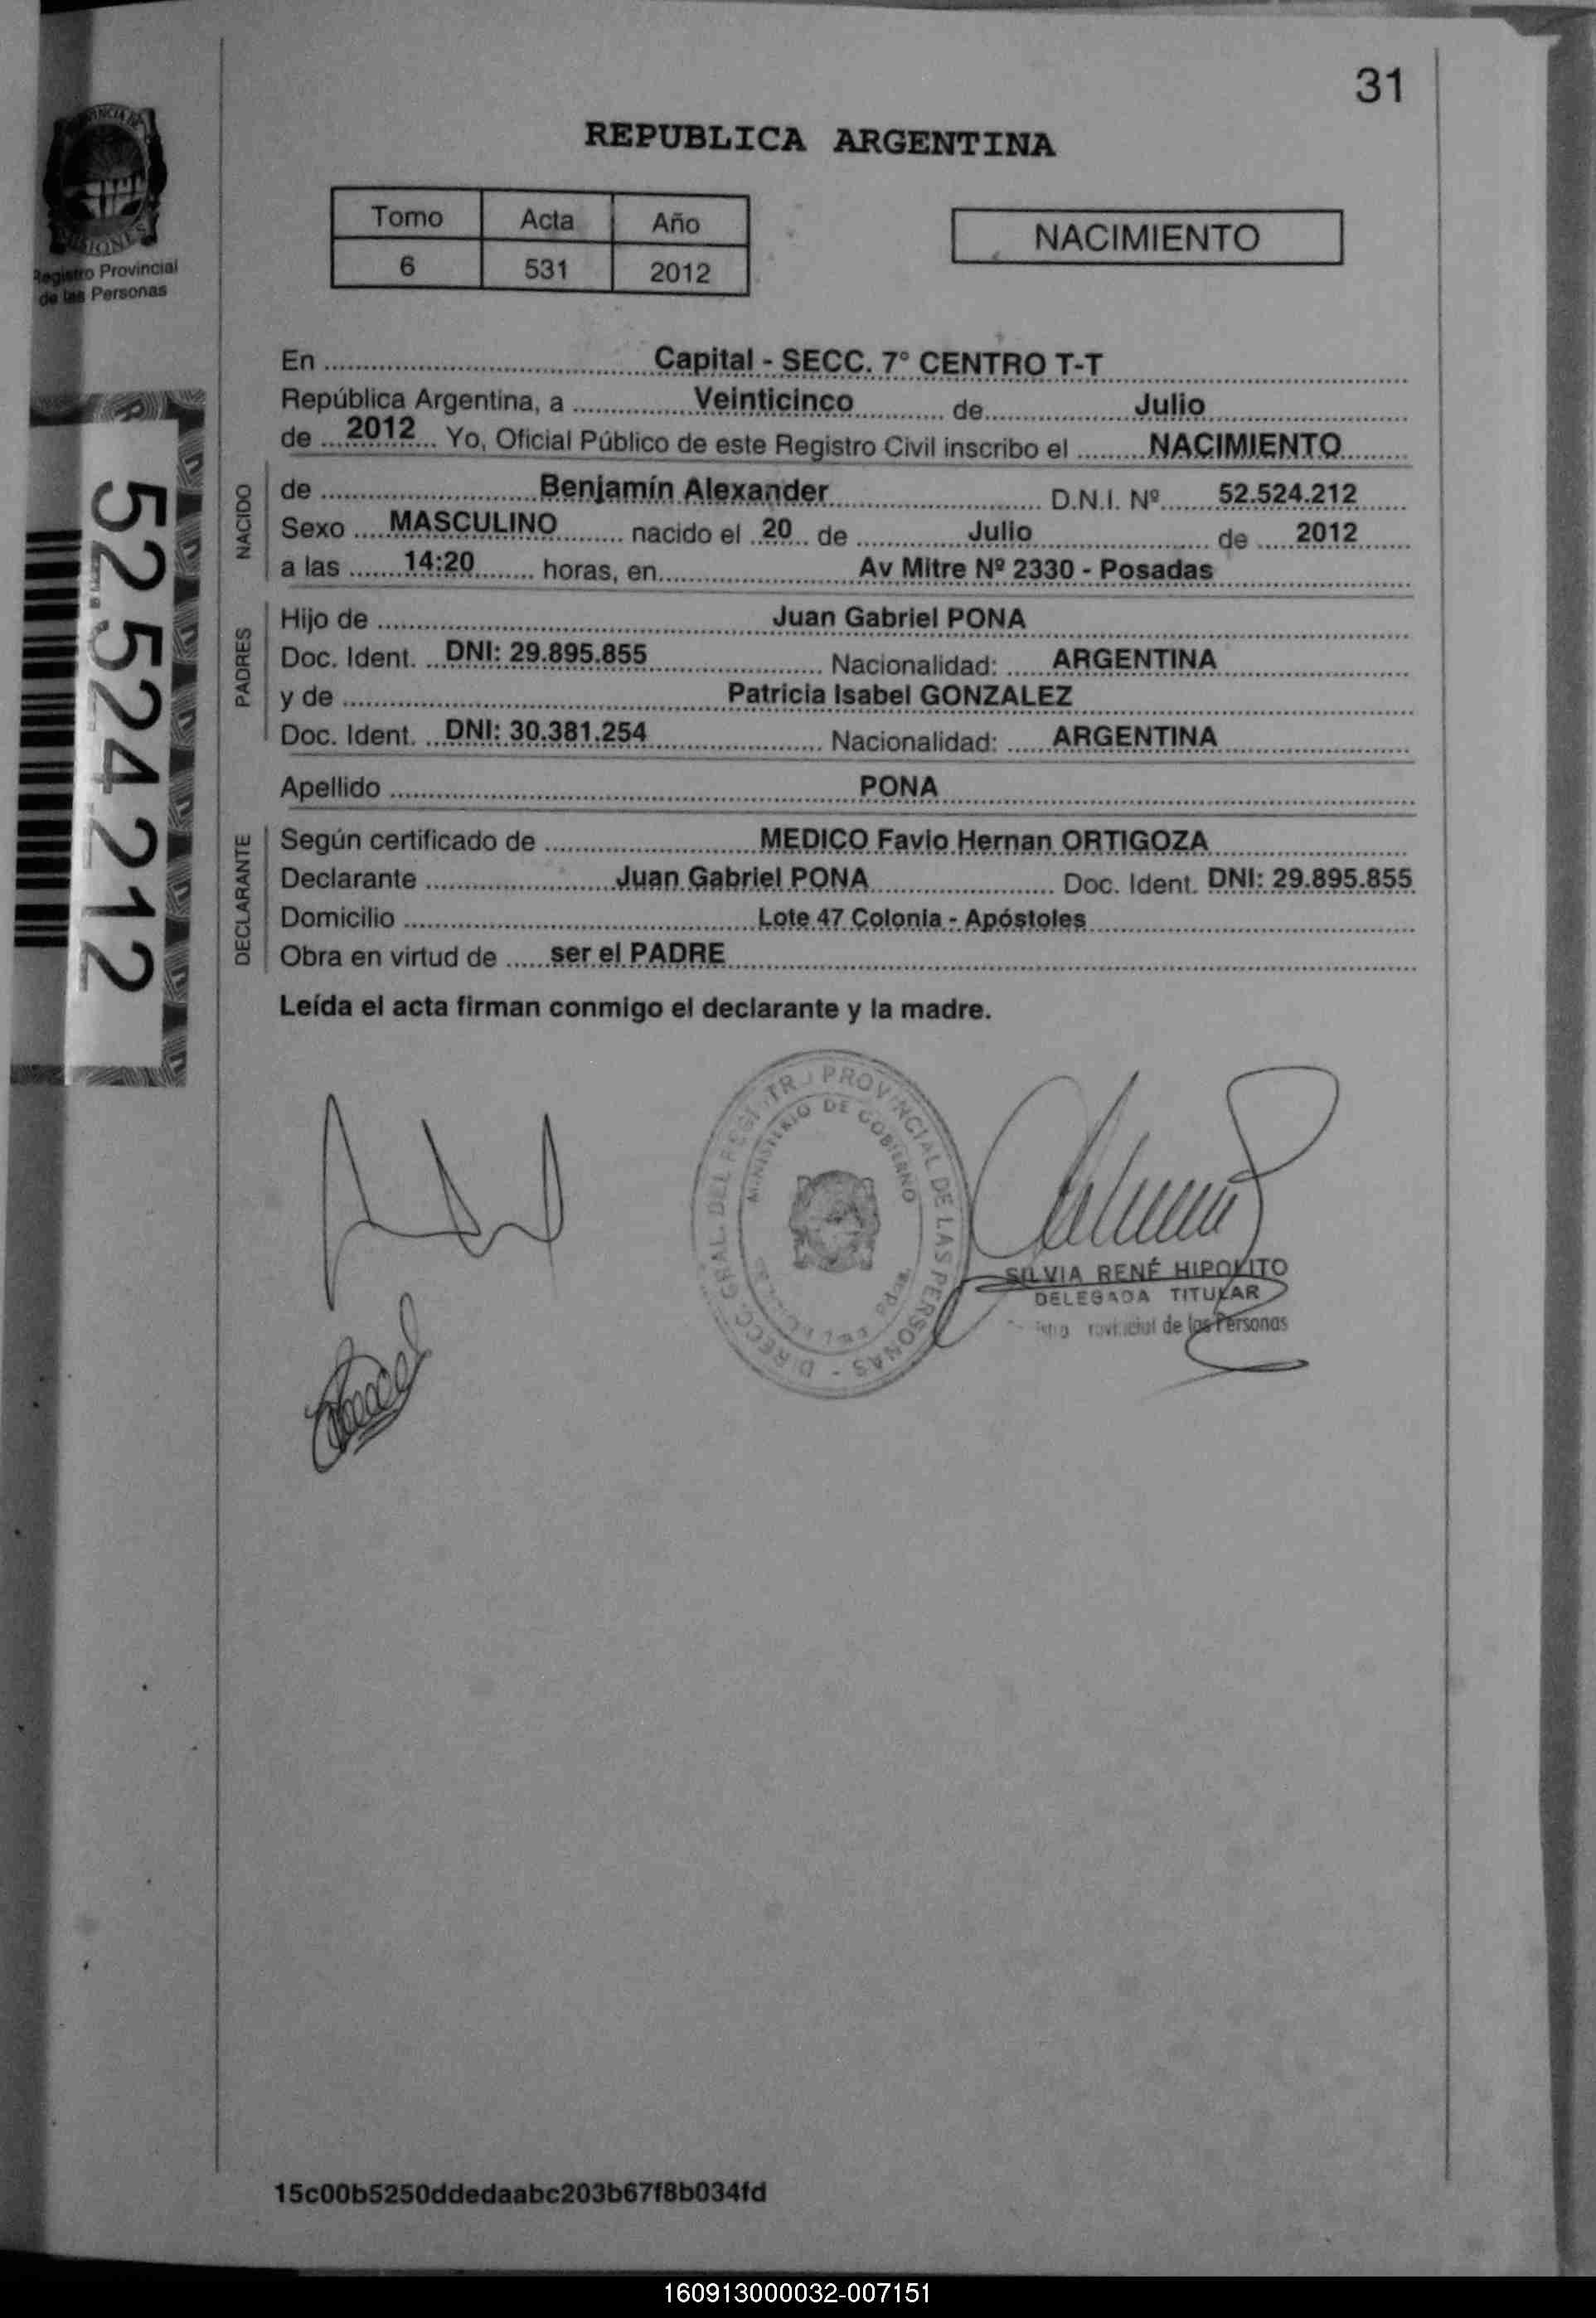 31
PROVINCIA DE
MISIONES
Registro Provincial
de las Personas
REPUBLICA ARGENTINA
Tomo Acta Año
6 531 2012
NACIMIENTO
En Capital - SECC. 7° CENTRO T-T
República Argentina, a Veinticinco de Julio
de 2012 Yo, Oficial Público de este Registro Civil inscribo el NACIMIENTO
NACIDO
de Benjamín Alexander D.N.I. Nº 52.524.212
Sexo MASCULINO nacido el 20 de Julio de 2012
a las 14:20 horas, en Av Mitre Nº 2330 - Posadas
PADRES
Hijo de Juan Gabriel PONA
Doc. Ident. DNI: 29.895.855 Nacionalidad: ARGENTINA
y de Patricia Isabel GONZALEZ
Doc. Ident. DNI: 30.381.254 Nacionalidad: ARGENTINA
Apellido PONA
DECLARANTE
Según certificado de MEDICO Favio Hernan ORTIGOZA
Declarante Juan Gabriel PONA Doc. Ident. DNI: 29.895.855
Domicilio Lote 47 Colonia - Apóstoles
Obra en virtud de ser el PADRE
Leída el acta firman conmigo el declarante y la madre.
52.524.212
DIRECC. GRAL. DEL REGISTRO PROVINCIAL DE LAS PERSONAS
MINISTERIO DE GOBIERNO
SILVIA RENÉ HIPOLITO
DELEGADA TITULAR
de las Personas
15c00b5250ddedaabc203b67f8b034fd
160913000032-007151